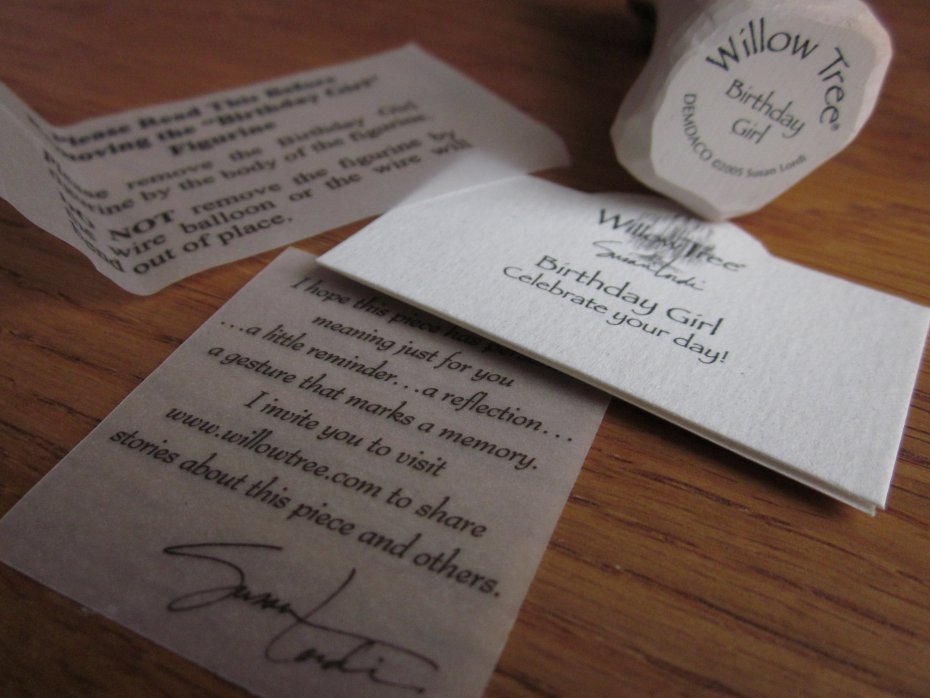 Please Read This Before
Removing the "Birthday Girl"
Figurine
remove the Birthday Girl
figurine by the body of the figurine
NOT remove the figurine by
wire balloon or the wire will
bend out of place.
Willow Tree®
Birthday
Girl
DEMDACO ©2005 Susan Lordi
Willow Tree®
Susan Lordi
Birthday Girl
Celebrate your day!
I hope this piece has
meaning just for you
...a little reminder...a reflection...
a gesture that marks a memory.
I invite you to visit
www.willowtree.com to share
stories about this piece and others.
Susan Lordi